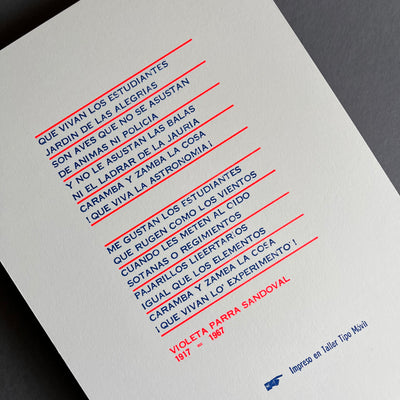 QUE VIVAN LOS ESTUDIANTES
JARDIN DE LAS ALEGRIAS
SON AVES QUE NO SE ASUSTAN
DE ANIMAS NI POLICIA
Y NO LE ASUSTAN LAS BALAS
NI EL LADRAR DE LA JAURIA
CARAMBA Y ZAMBA LA COSA
¡ QUE VIVA LA ASTRONOMIA ¡
ME GUSTAN LOS ESTUDIANTES
QUE RUGEN COMO LOS VIENTOS
CUANDO LES METEN AL OIDO
SOTANAS O REGIMIENTOS
PAJARILLOS LIBERTARIOS
IGUAL QUE LOS ELEMENTOS
CARAMBA Y ZAMBA LA COSA
¡ QUE VIVAN LO' EXPERIMENTO' !
VIOLETA PARRA SANDOVAL
1917 – 1967
Impreso en Taller Tipo Móvil